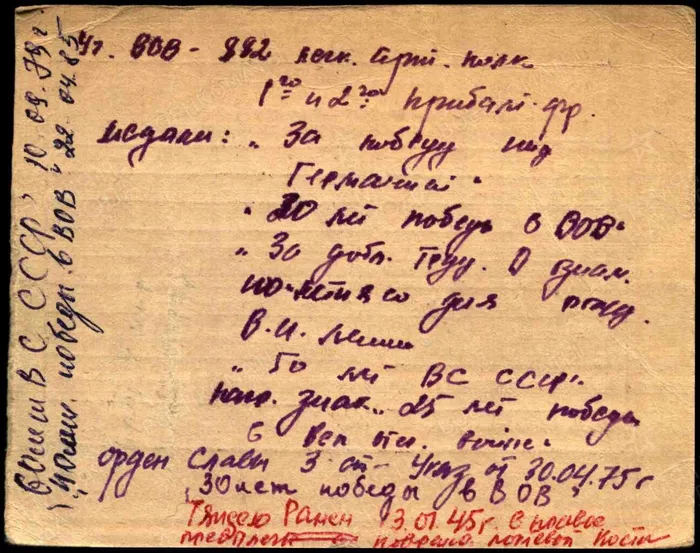 Уч. ВОВ - 882 легк. арт. полк
1го и 2го прибалт. фр.
медали: „За победу над
Германией“
„20 лет победы в ВОВ“
„За добл. труд. В ознам.
100-летия со дня рожд.
В.И. Ленина
„50 лет ВС СССР“
нагр. знак „25 лет победы
в Вел. отеч. войне“
орден Славы 3 ст - Указ от 30.04.75 г
„30 лет победы в ВОВ“
Тяжело Ранен 13.01.45 г. в правое
предплечье поврежд. локтевой кости
60 лет ВС СССР“ 10.09.79 г.
„40 лет победы в ВОВ“ 22.04.85